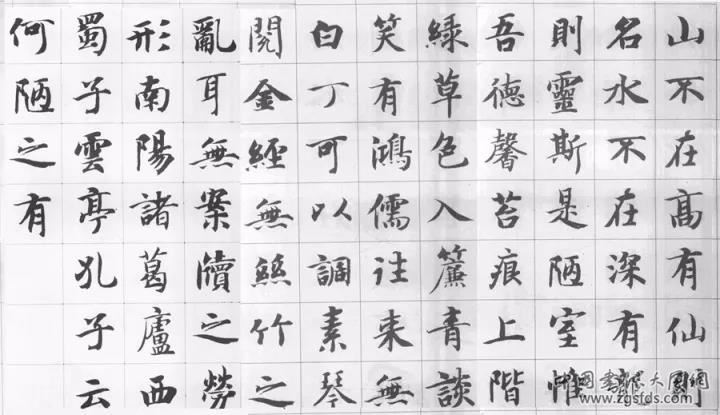 山不在高有仙則
名水不在深有龍
則靈斯是陋室惟
吾德馨苔痕上階
綠草色入簾青談
笑有鴻儒往来無
白丁可以調素琴
閱金經無絲竹之
亂耳無案牘之勞
形南陽諸葛廬西
蜀子雲亭孔子云
何陋之有
www.zgsfds.com